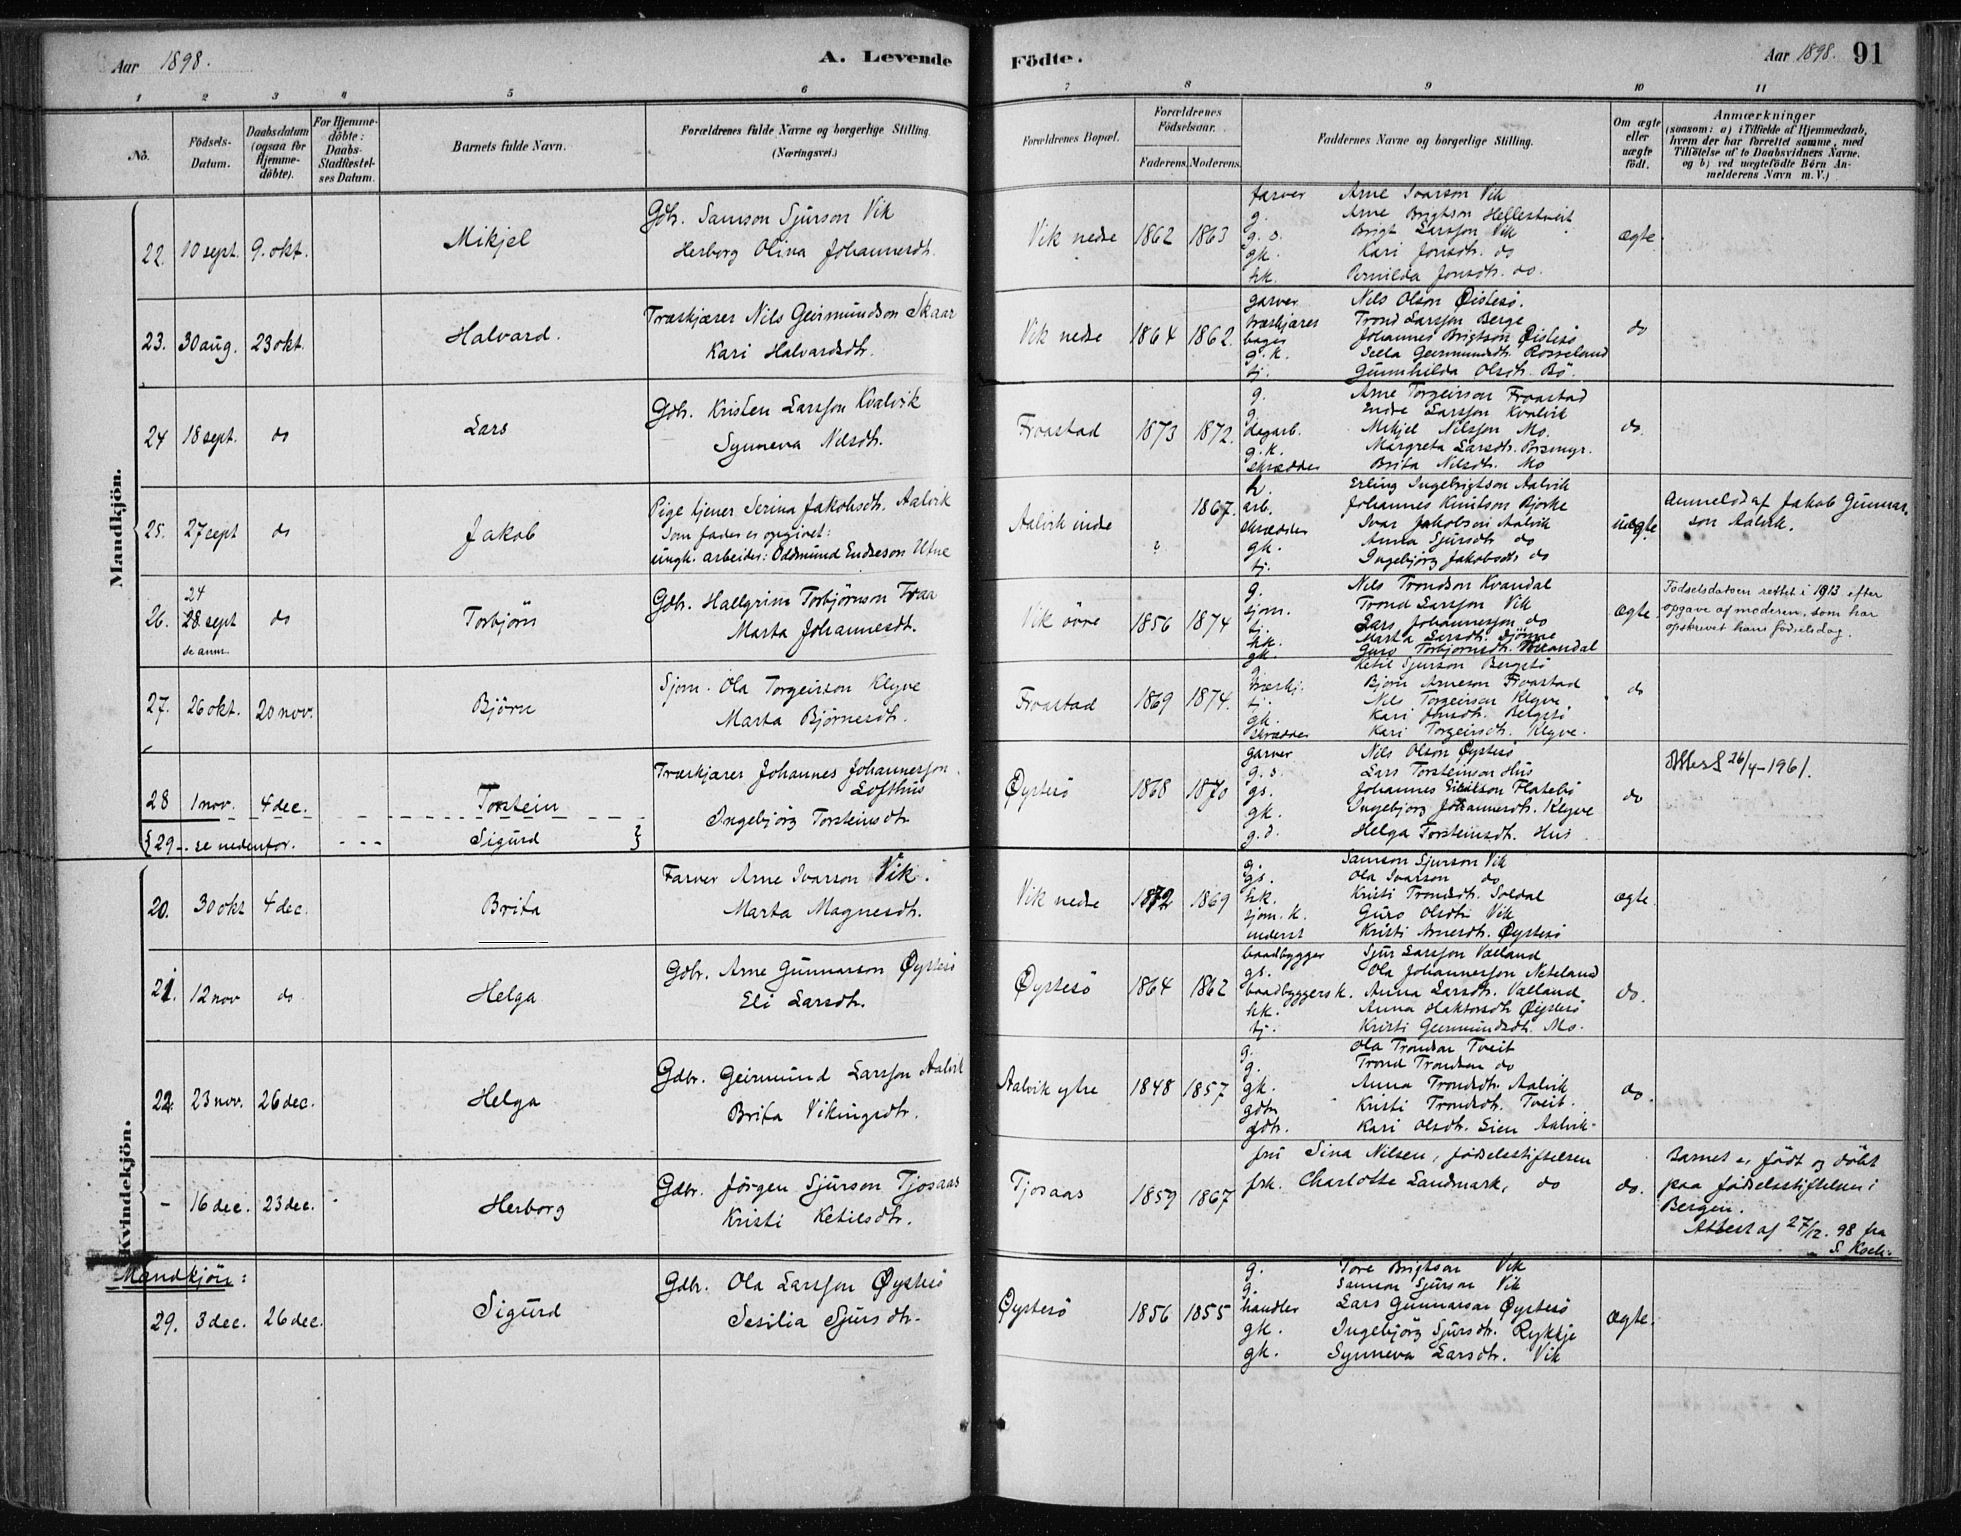 Aar 1898.
A. Levende
Födte.
Aar 1898. 91
1 2 3 4 5 6 7 8 9 10 11
No.
Födsels-
Datum.
Daabsdatum
(ogsaa for
Hjemme-
döbte).
For Hjemme-
döbte:
Daabs-
Stadfæstel-
ses Datum.
Barnets fulde Navn.
Forældrenes fulde Navne og borgerlige Stilling.
(Næringsvei.)
Forældrenes Bopæl.
Forældrenes
Födselsaar.
Faderens. Moderens.
Faddernes Navne og borgerlige Stilling.
Om ægte
eller
uægte
födt.
Anmærkninger
(saasom: a) i Tilfælde af Hjemmedaab,
hvem der har forrettet samme, med
Tilföielse af to Daabsvidners Navne.
og b) ved uægtefödte Börn An-
melderens Navn m. V.)
Mandkjön.
22. 10 sept. 9. okt. Mikjel
Gbr. Samson Sjurson Vik
Herborg Olina Johannesdt.
Vik nedre 1862 1863
farver Arne Ivarson Vik
g. Arne Brigtson Hellestveit
g. s. Brigt Larsson Vik
gk. Kari Jonsdt. do
hk. Pernilda Jonsdt. do.
ægte.
23. 30 aug. 23 okt. Halvard.
Træskjærer Nils Geirmundson Skaar
Kari Halvardsdt.
Vik nedre 1864 1862.
garver Nils Olson Øistesö.
træskjærer Trond Larsson Berge
bager Johannes Brigtson Øistesö
g. k. Seela Geirmundsdt. Rosseland
tj. Gunnhilda Olsdt. Bö.
do
24 18 sept. do Lars
Gbr. Kristen Larsson Kvalvik
Synneva Nilsdt.
Froastad 1873 1872.
g. Arne Torgeirson Froastad
g. Endre Larsson Kvalvik
dagarb. Mikjel Nilsson Mo.
g. k. Margreta Larsdt. Porsmyr.
skrædder Brita Nilsdt. Mo
do.
25. 27 sept do Jakob
Pige tjener Serina Jakobsdt. Aalvik
Som fader er opgivet:
ungk. arbeider: Oddmund Endreson Utne
Aalvik indre 1867.
h. Erling Ingebrigtson Aalvik
arb. Johannes Knutson Bjorke
skrædder Ivar Jakobson Aalvik
gk. Anna Sjursdt do
tj. Ingebjørg Jakobsdt do
uægte.
Anmeldt af Jakob Gunnar-
son Aalvik.
24
26. 28 sept do Torbjörn
se anm.
Gbr. Hallgrim Torbjörnson Traa
Marta Johannesdt.
Vik övre 1856 1874
g. Nils Trondson Kvandal
sjom. Trond Larsson Vik
tj. Lars Johannesson do
hk. Marta Larsdt. Djönne
gk. Guro Torbjörnsdt.
ægte.
Fødselsdatoen rettet i 1913 efter
opgave af moderen, som har
opskrevet hans fødselsdag.
27. 26 okt. 20 nov. Björn
Sjom. Ola Torgeirson Klyve
Marta Bjørnesdt.
Froastad 1869 1874.
g. Ketil Sjurson Bergstö
træskj. Bjorn Arneson Froastad
tj. Nils Torgeirson Klyve
gk. Kari Jonsdt. Belgstö
skrædder Kari Torgeirsdt. Klyve.
do
28 1 nov. 4 dec. Torstein
Træskjærer Johannes Johannesson
Lofthus
Ingebjörg Torsteinsdt
Øystesö 1868 1870
garver Nils Olson Øystesö
g. s. Lars Torsteinson Hus
gs. Johannes Flatebö
gk. Ingebjorg Johannesdt. Klyve
g. d. Helga Torsteinsdt. Hus
do
26/4-1961.
{29 - se nedenfor. - - - Sigurd }
Kvindekjön.
20. 30 okt 4 dec. Brita
Farver Arne Ivarson Vik.
Marta Magnesdt.
Vik nedre 1872 1869
g. Samson Sjurson Vik
gs. Ola Ivarson do
hk. Kristi Trondsdt. Soldal
sjom. k. Guro Olsdt Vik
inderst Kristi Arnesdt. Øystesö
ægte.
21. 12 nov do Helga
Gbr. Arne Gunnarson Øystesö
Eli Larsdt.
Øystesö 1864 1862
baadbygger Sjur Larsson Valland
gs. Ola Johannesson Neteland
baadbyggers k. Anna Larsdt. Valland
hk. Anna Haktorsdt Øistesö
tj. Kristi Geirmundsdt. Mo.
do.
22. 23 nov. 26 dec. Helga
Gdbr. Geirmund Larsson Aalvik
Brita Vikingsdt.
Aalvik ytre 1848 1857
g. Ola Trondson Tveit
g. Trond Trondson do
gk. Anna Trondsdt. Aalvik
gdtr Kristi Trondsdt. Tveit.
gdtr. Kari Olsdt. Lien Aalvik
do.
- 16 dec. 23 dec. - Herborg
Gdbr. Jörgen Sjurson Tjosaas
Kristi Ketilsdt.
Tjosaas 1859 1867
fru Sina Nilsen, fødselsstiftelsen
frk. Charlotte Landmark, do
do.
Barnet er født og døbt
paa fødselsstiftelsen i
Bergen.
Attest af 27/12. 98 fra
S. Koch.
Mandkjön:
29. 3 dec. 26 dec. Sigurd
Gdbr. Ola Larsson Øystesö
Sesilia Sjursdt.
Øystesö 1856 1855
g. Tore Brigtson Vik
g. Samson Sjurson Vik
handler Lars Gunnarson Øystesö
gk. Ingebjörg Sjursdt. Rykkje
gk. Synneva Larsdt. Vik
ægte.